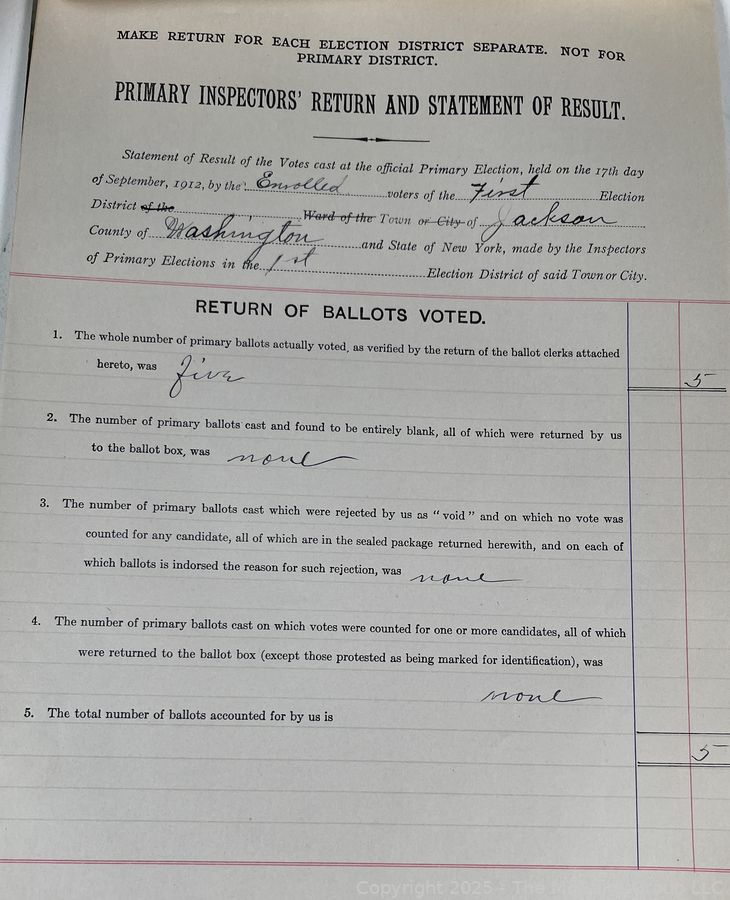 MAKE RETURN FOR EACH ELECTION DISTRICT SEPARATE. NOT FOR
PRIMARY DISTRICT.
PRIMARY INSPECTORS' RETURN AND STATEMENT OF RESULT.
Statement of Result of the Votes cast at the official Primary Election, held on the 17th day
of September, 1912, by the Enrolled voters of the First Election
District of the Ward of the Town or City of Jackson
County of Washington and State of New York, made by the Inspectors
of Primary Elections in the 1st Election District of said Town or City.
RETURN OF BALLOTS VOTED.
1. The whole number of primary ballots actually voted, as verified by the return of the ballot clerks attached
hereto, was five 5
2. The number of primary ballots cast and found to be entirely blank, all of which were returned by us
to the ballot box, was none
3. The number of primary ballots cast which were rejected by us as "void" and on which no vote was
counted for any candidate, all of which are in the sealed package returned herewith, and on each of
which ballots is indorsed the reason for such rejection, was none
4. The number of primary ballots cast on which votes were counted for one or more candidates, all of which
were returned to the ballot box (except those protested as being marked for identification), was
none
5. The total number of ballots accounted for by us is
5
Copyright 2025 - The
LLC